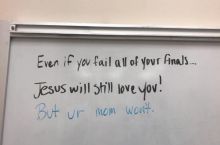 Even if you fail all of your finals...
Jesus will still love you!
But ur mom wont.